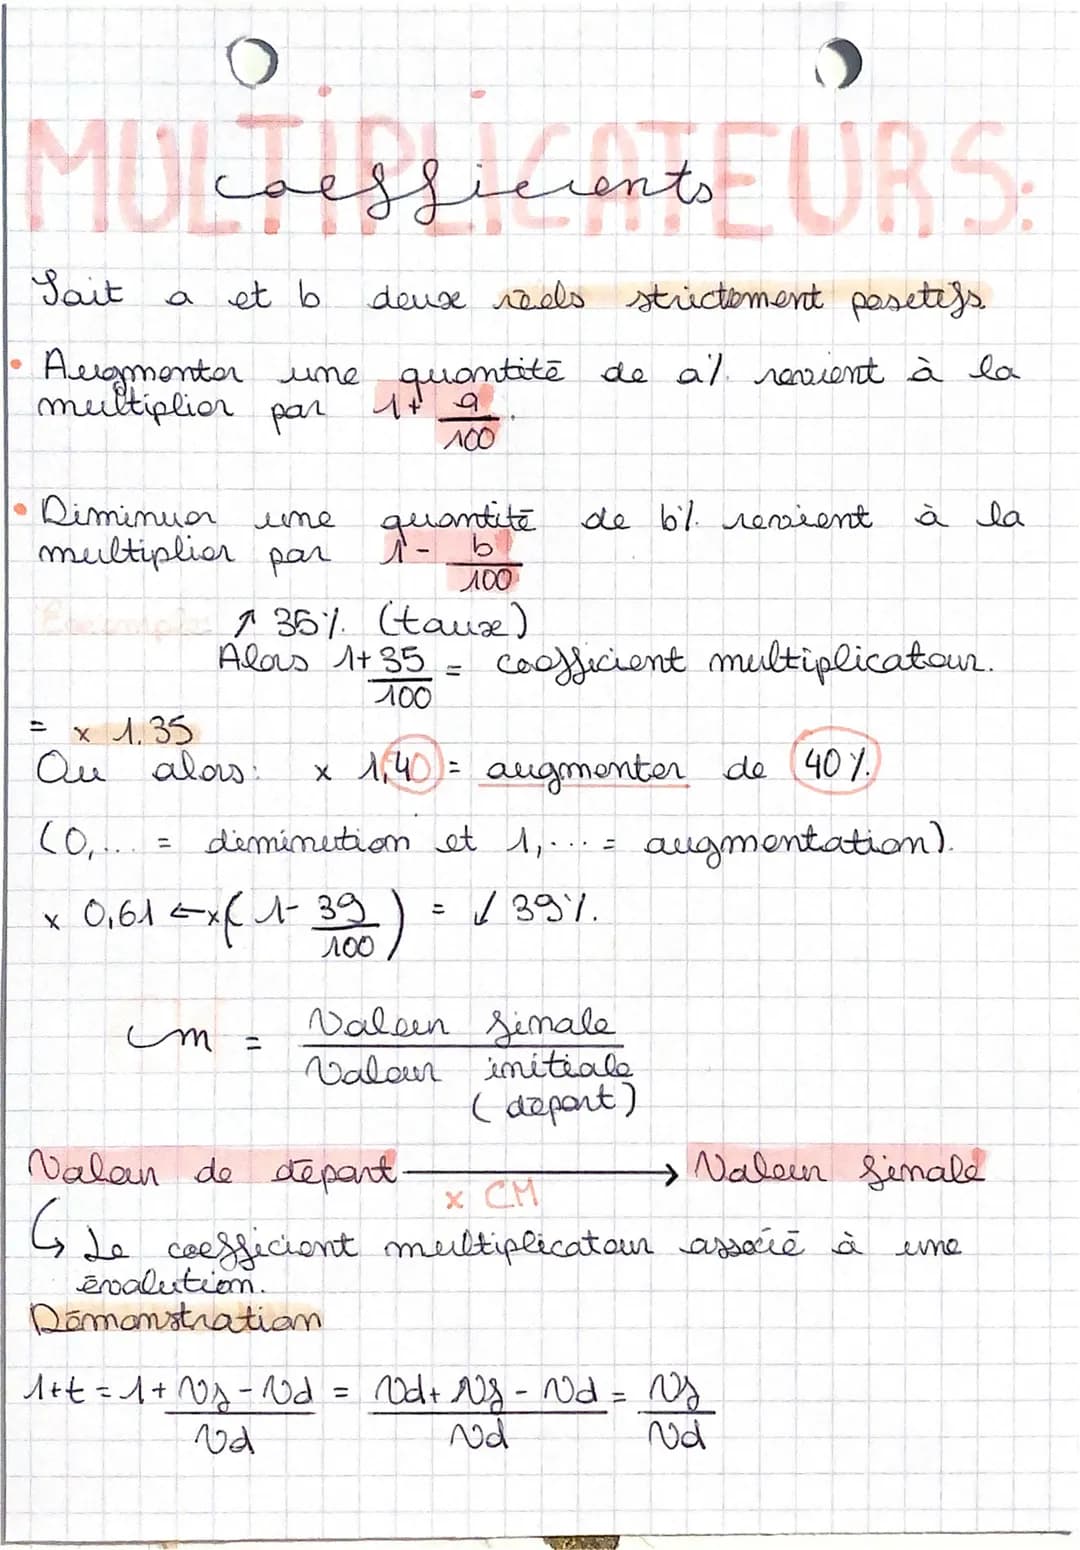 MULTIPLICATEURS:
coefficients
Soit a et b deux réels strictement positifs
• Augmenter une quantité de a% revient à la
multiplier par 1+ a/100.
• Diminuer une quantité de b% revient à la
multiplier par 1 - b/100
Exemple: ↗ 35% (taux)
Alors 1+ 35/100 = coefficient multiplicateur.
= x 1,35
Ou alors: x 1,40 = augmenter de 40%.
(0,... = diminution et 1,... = augmentation).
x 0,61 ← x( 1- 39/100 ) = ↙ 39%.
Cm = Valeur finale / Valeur initiale
(départ)
Valeur de départ → Valeur finale
x CM
↳ Le coefficient multiplicateur associé à une
évolution.
Démonstration
1+t = 1+ Vf - Vd / Vd = Vd + Vf - Vd / Vd = Vf / Vd